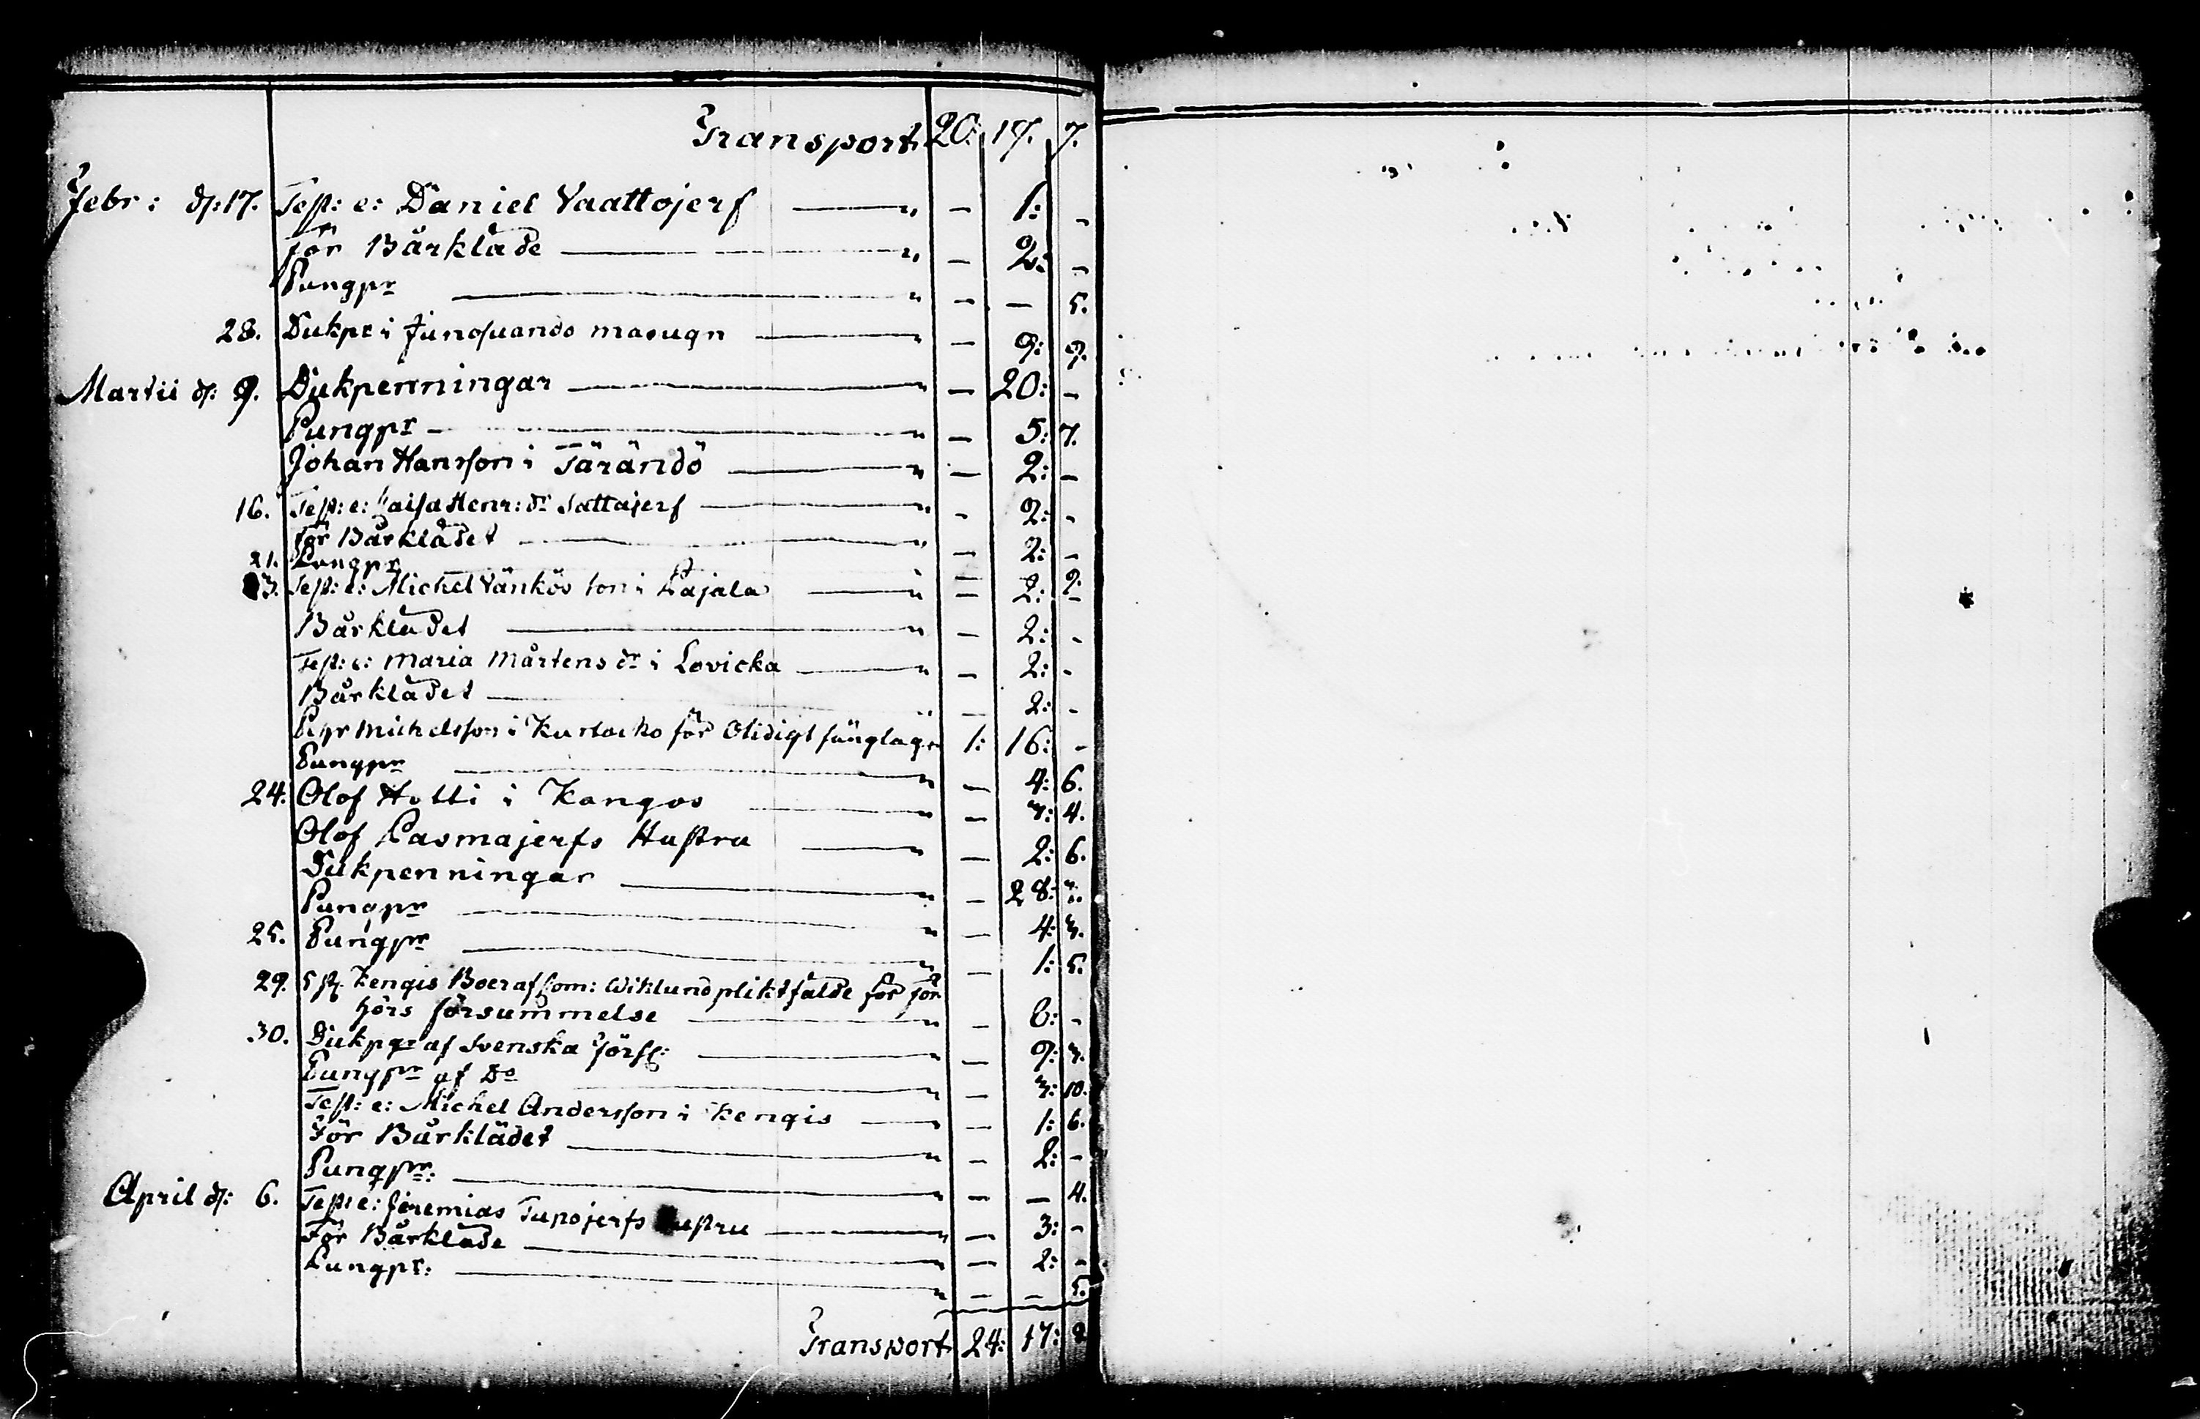 Transport. 20: 17. 7.
Febr: d: 17. Test: e: Daniel Vaattojerf — " — 1: -
för Bårkläde — " — 2: -
Pungpr — " — — 5.
28. Dukpr i Junosuando masugn — — 9: 9.
Martii d: 9. Dukpenningar — " — 20: -
Pungpr — " — 5: 7.
Johan Hansson i Tärändö — " — 2: -
16. Test: e: Caisa Henr: dr Sattajerf — " - 2: -
för Bårklädet — " — 2: -
21. Pungpr — 2.
23. Test: e: Michel Vänkös son i Pajala — " — 2: -
Bårklädet — " — 2: -
Test: e: Maria Mårtens dr i Lovicka — " — 2: -
Bårklädet — " — 2: -
Pehr Michelsson i Kurtacko för Olidigt 1: 16: -
Pungpr — " — 4: 6.
24. Olof Hotti i Kangos — " — 7: 4.
Olof Pasmajerfs Hustru — " — 2: 6.
Dukpenningar — " — 28:
Pungpr — " — 4: 3.
25. Pungpr — " — 1: 5.
29. 5 st. Kengis Boer af Com: Wiklund pliktfälde för för
hörs försummelse — " — 6: -
30. Dukpgr af Svenska Förs: — " — 9: 3.
Pungpr af Do — " — 3: 10.
Test: e: Michel Andersson i Kengis — " — 1: 6.
För Bårklädet — " — 2: -
Pungpr: — " — — 4.
April d: 6. Test: e: Jeremias Tupojerfs Hustru — " — 3: -
För Bårkläde — " — 2: -
Pungpr: — " — — 5.
Transport. 24: 17: 2